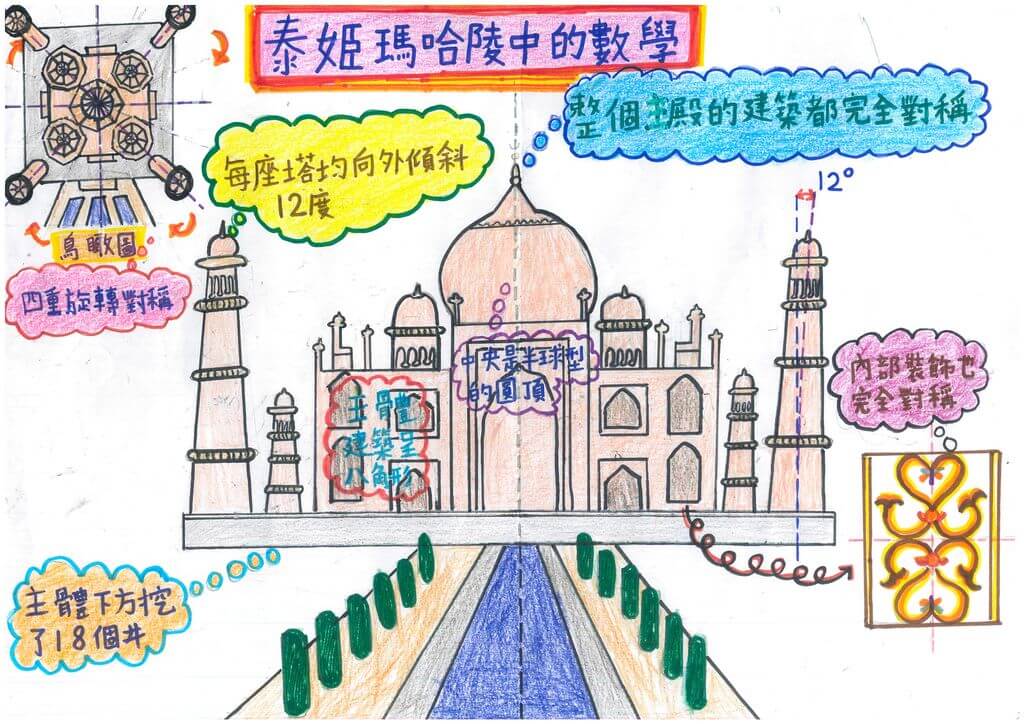 泰姬瑪哈陵中的數學
整個主殿的建築都完全對稱
每座塔均向外傾斜
12度
12°
鳥瞰圖
四重旋轉對稱
中央是半球型
的圓頂
主體
建築呈
八角形
內部裝飾也
完全對稱
主體下方挖
了18個井